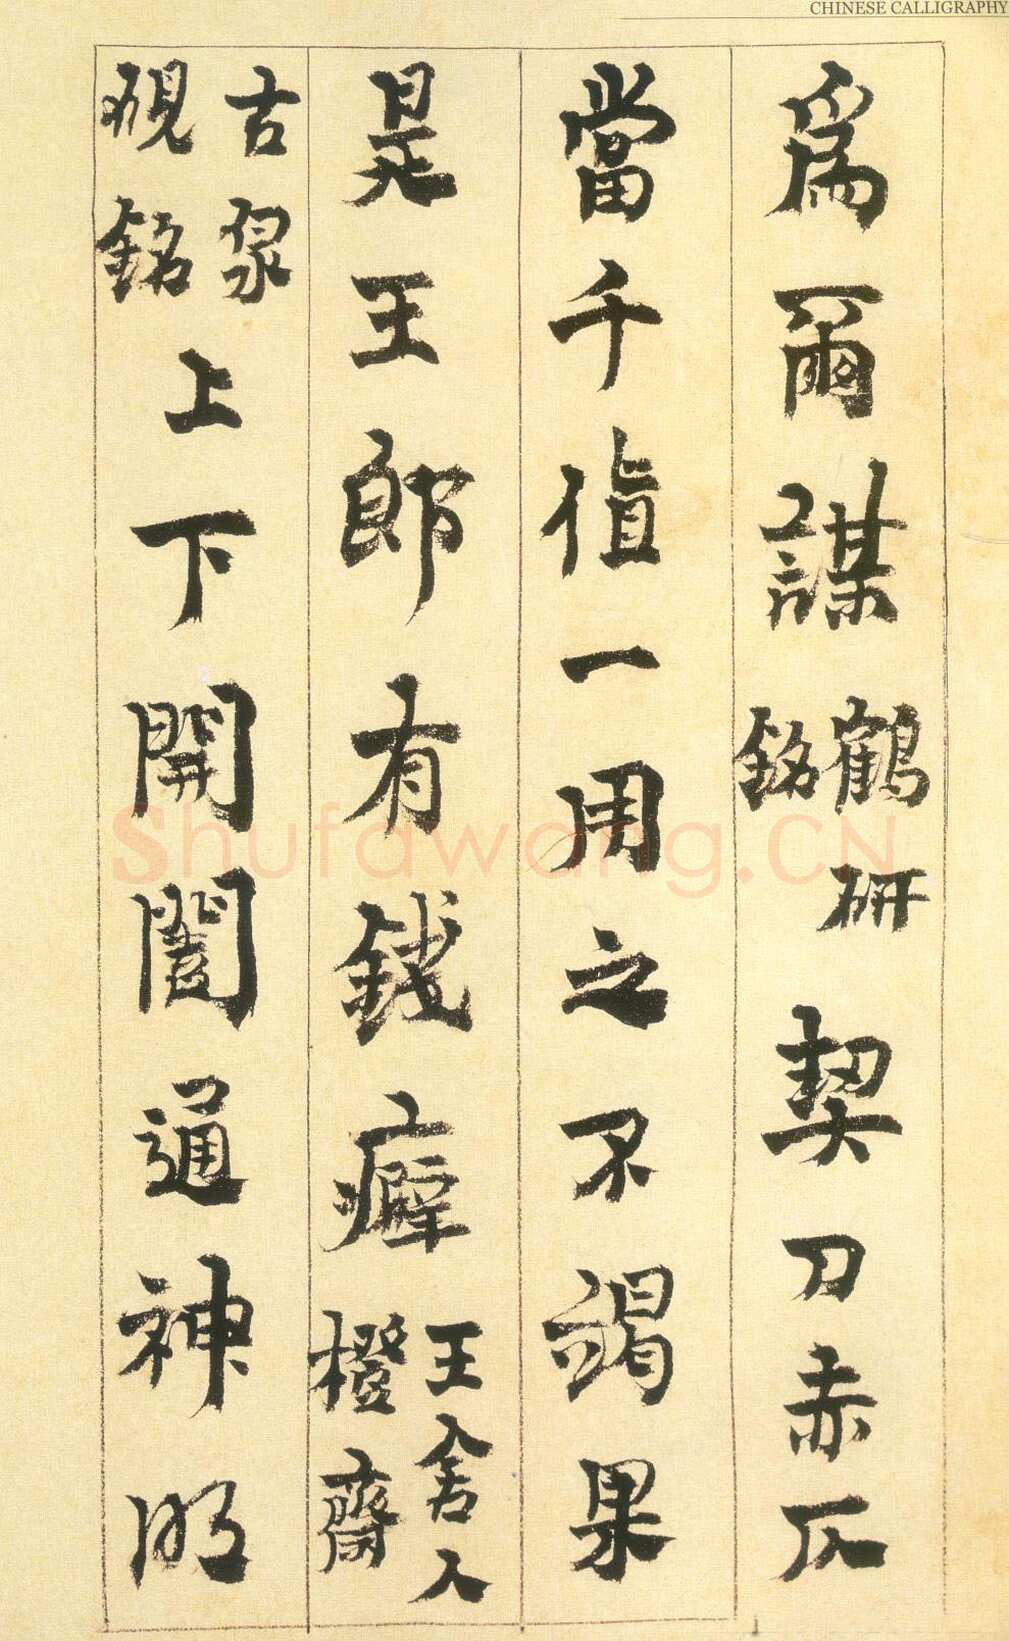 CHINESE CALLIGRAPHY
爲爾謀鶴研銘契刀赤仄
當千值一用之不竭果
是王郎有錢癖王舍人橙齋
古泉硯銘上下開闔通神明
Shufawang.CN